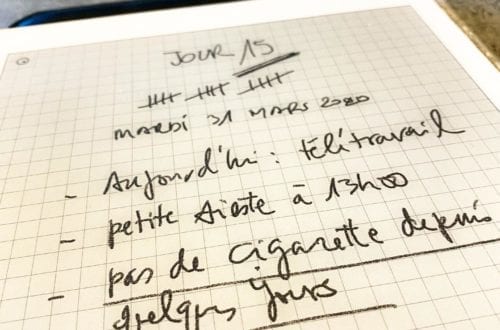 JOUR 15
MARDI 31 MARS 2020
- Aujourd'hui : télétravail
- petite sieste à 13h00
- pas de cigarette depuis
quelques jours